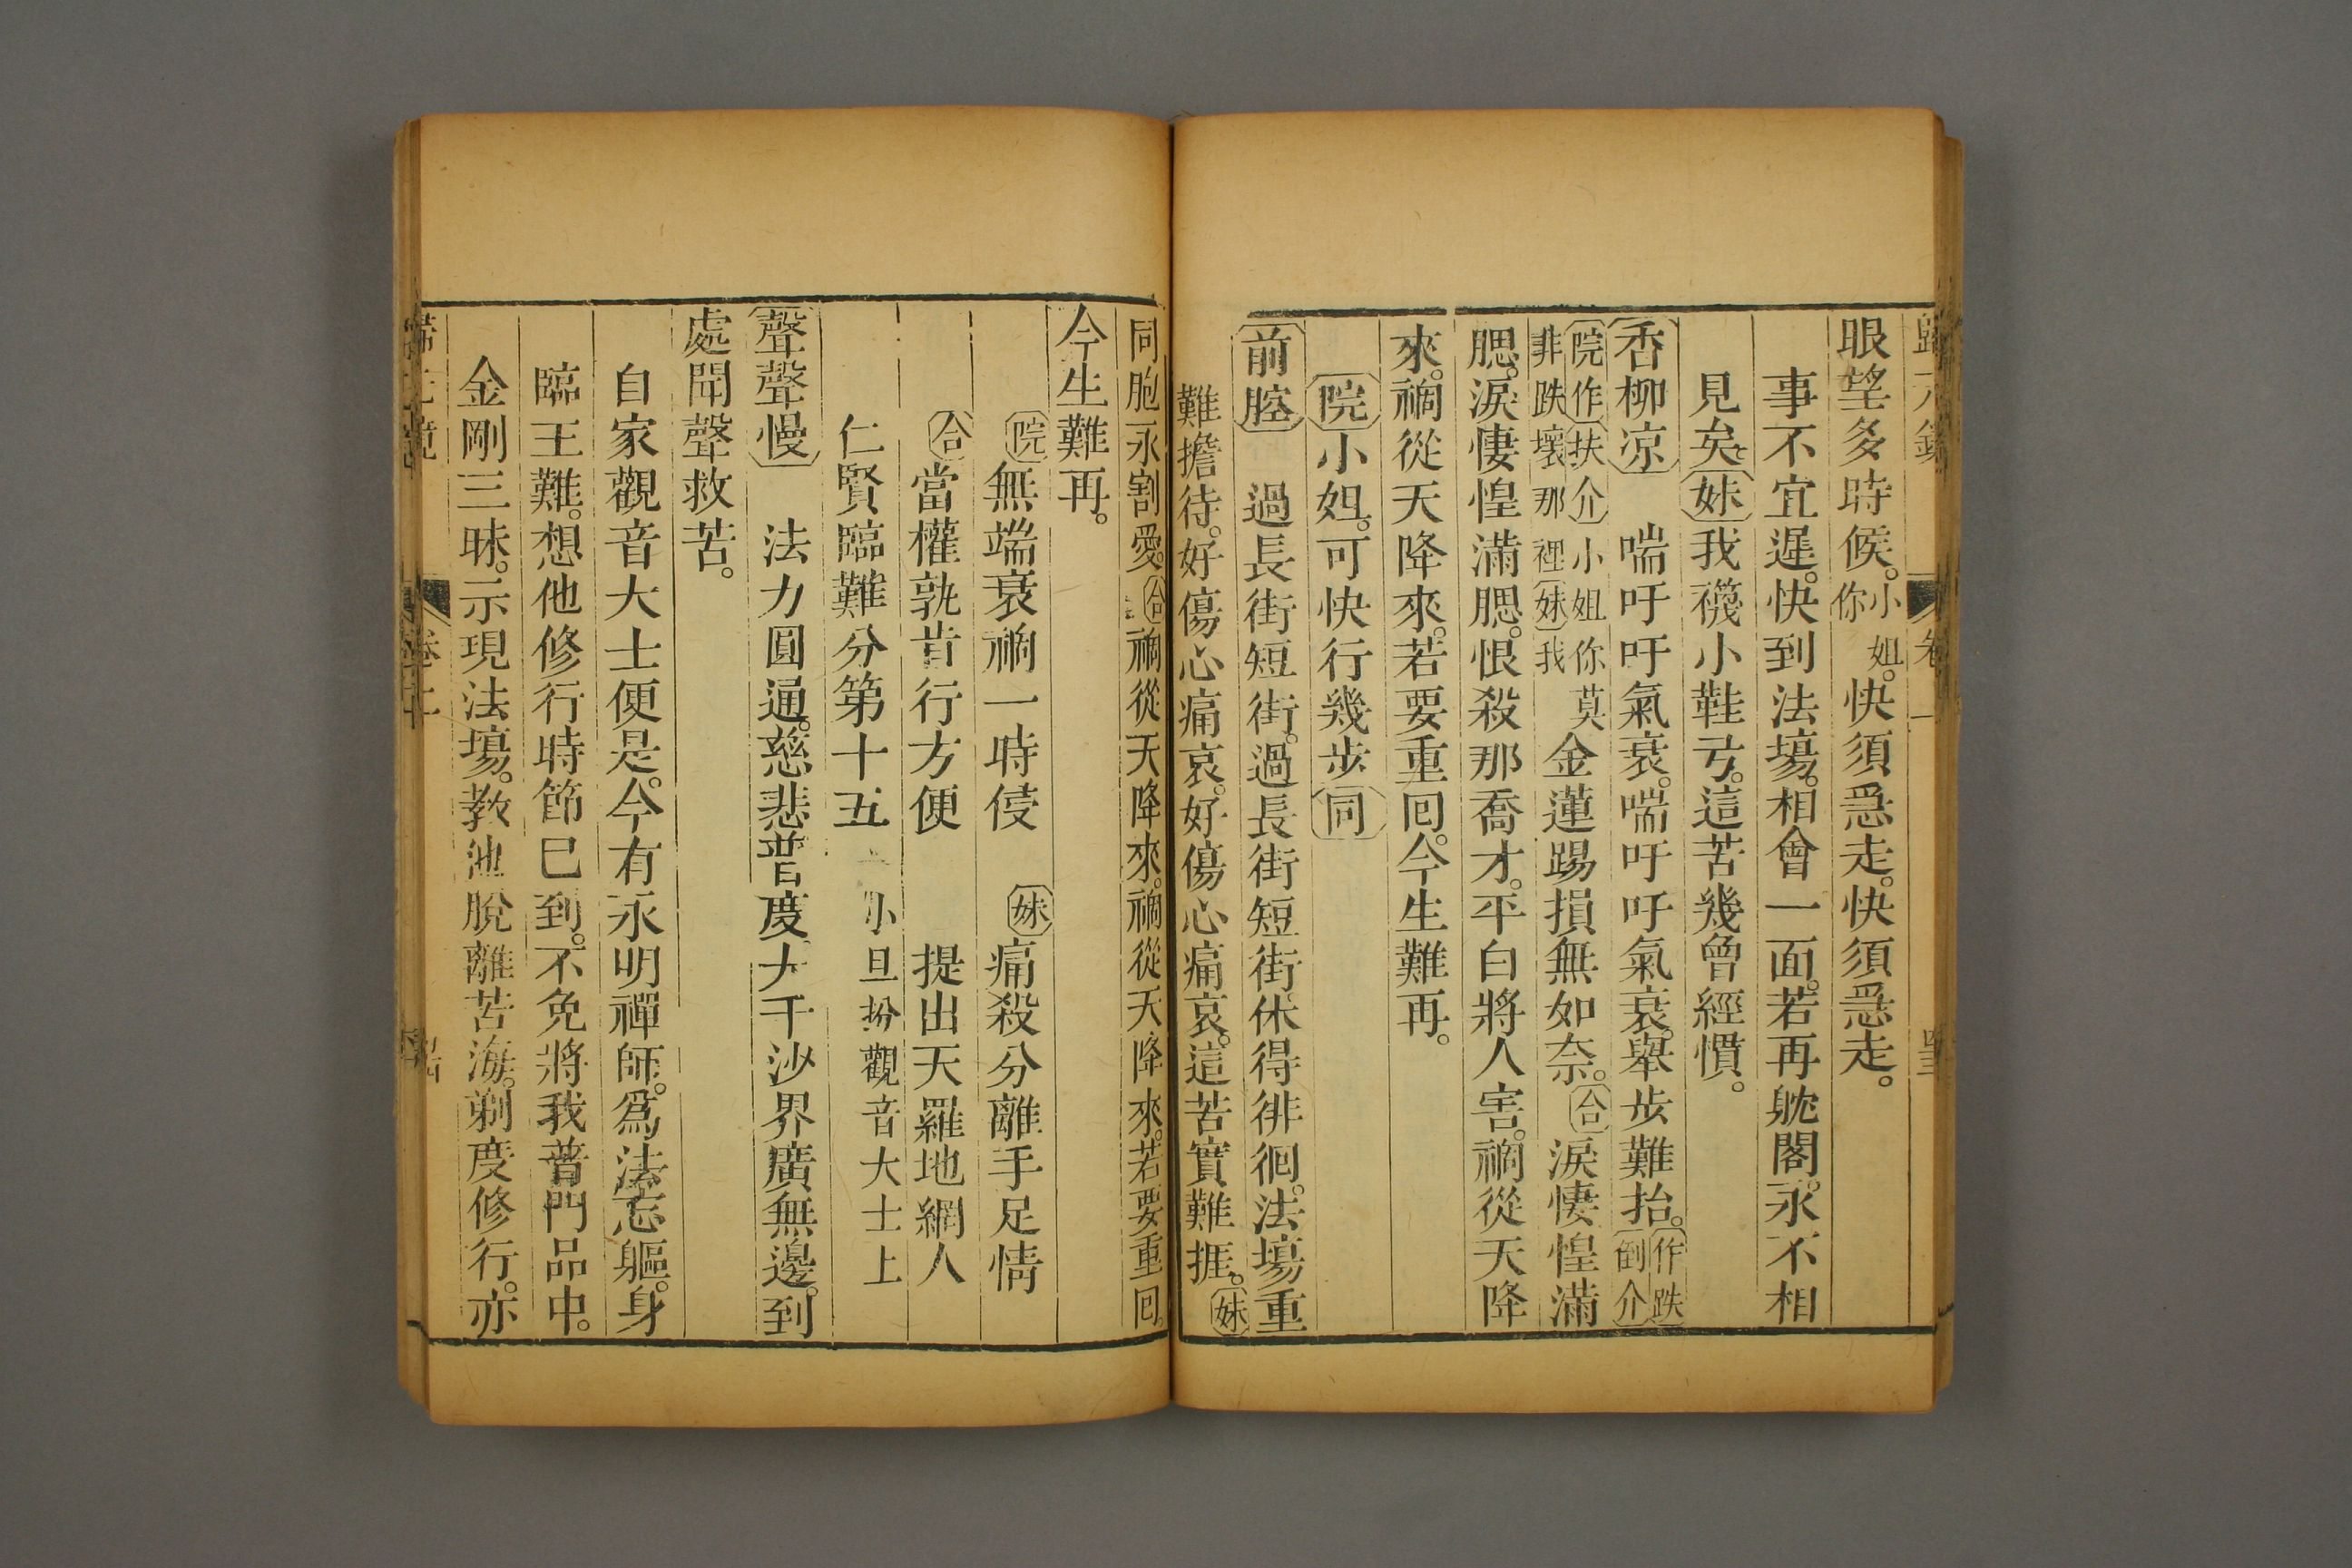 眼望多時候。小姐。你快須急走。快須急走。
事不宜遲。快到法場。相會一面。若再躭閣。永不相
見矣。妹我襪小鞋弓。這苦幾曾經慣。
香柳凉 喘吁吁氣衰。喘吁吁氣衰。舉步難抬。作跌倒介
院作扶介小姐你莫非跌壞那裡妹我金蓮踢損無如奈。合淚悽惶滿
腮。淚悽惶滿腮。恨殺那喬才。平白將人害。禍從天降
來。禍從天降來。若要重囘。今生難再。
院小姐。可快行幾步同
前腔 過長街短街。過長街短街。休得徘徊。法場重
難擔待。好傷心痛哀。好傷心痛哀。這苦實難捱。妹
同胞永割愛。合禍從天降來。禍從天降來。若要重囘。
今生難再。
院無端衰禍一時侵 妹痛殺分離手足情
合當權孰肯行方便 提出天羅地網人
仁賢臨難分第十五 小旦扮觀音大士上
聲聲慢 法力圓通。慈悲普度大千沙界廣無邊。到
處聞聲救苦。
自家觀音大士便是。今有永明禪師。爲法忘軀。身
臨王難。想他修行時節已到。不免將我普門品中。
金剛三昧。示現法場。教他脫離苦海。剃度修行。亦